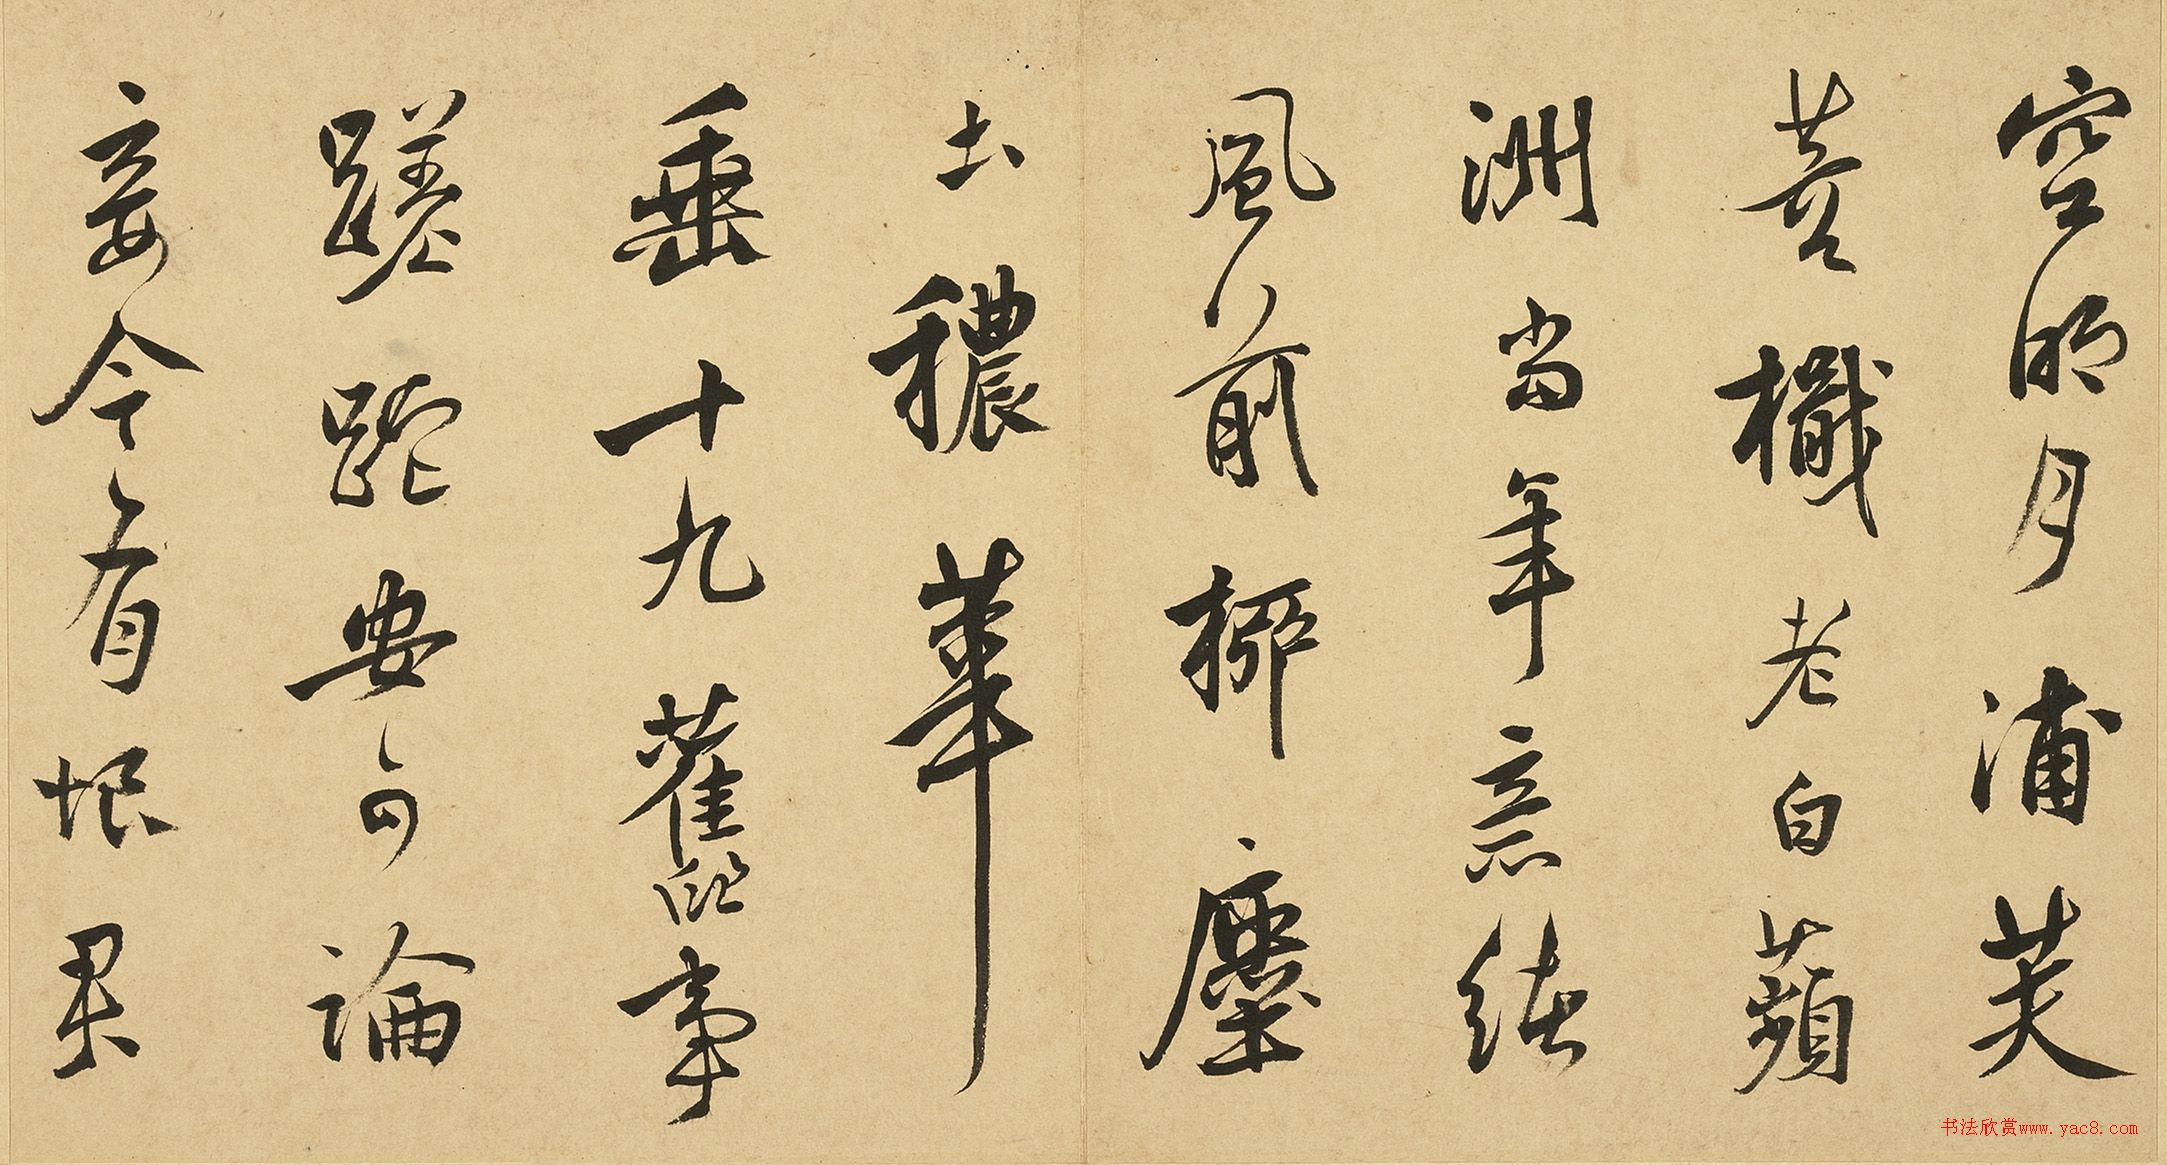 空明月浦芙
蓉檝老白蘋
洲當年意結
風前柳塵
土穠華
垂十九舊事
蹉跎要可論
妾今有恨果
书法欣赏www.yac8.com